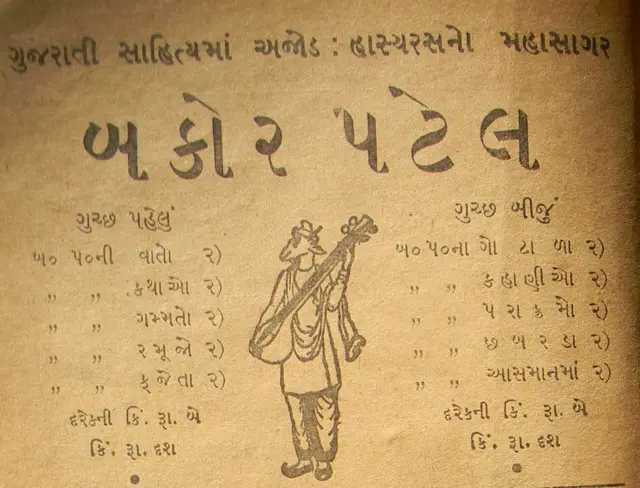 ગુજરાતી સાહિત્યમાં અજોડ : હાસ્યરસનો મહાસાગર
બકોર પટેલ
ગુચ્છ પહેલું
બ૦ પ૦ની વાતો ૨)
„ „ કથાઓ ૨)
„ „ ગમ્મતો ૨)
„ „ રમૂજો ૨)
„ „ ફજેતા ૨)
દરેકની કિં. રૂા. બે
કિં. રૂા. દશ
ગુચ્છ બીજું
બ૦ પ૦ના ગોટાળા ૨)
„ „ કહાણીઓ ૨)
„ „ પરાક્રમો ૨)
„ „ છબરડા ૨)
„ „ આસમાનમાં ૨)
દરેકની કિં. રૂા. બે
કિં. રૂા. દશ